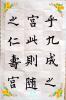 乎九成之
宮此則随
之仁壽宮